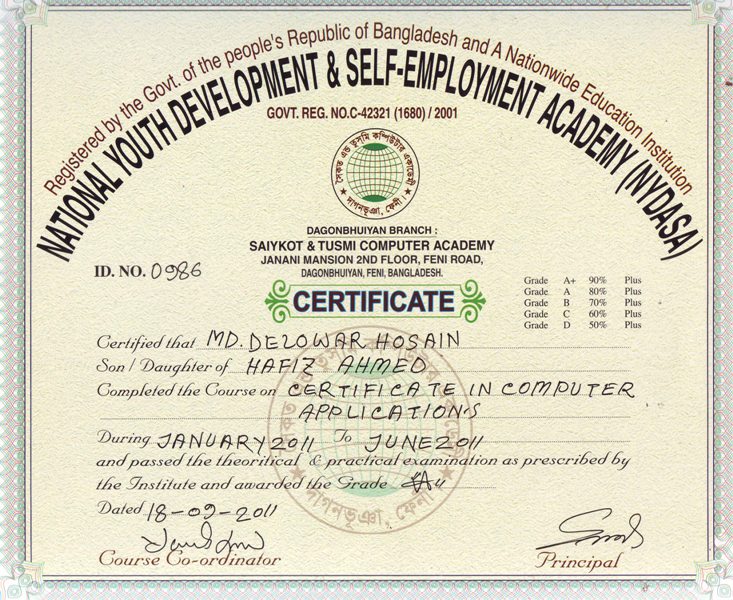 Registered by the Govt. of the people's Republic of Bangladesh and A Nationwide Education Institution
NATIONAL YOUTH DEVELOPMENT & SELF-EMPLOYMENT ACADEMY (NYDASA)
GOVT. REG. NO.C-42321 (1680) / 2001
সৈকত এন্ড তুসমি কম্পিউটার একাডেমী
দাগনভূঞা, ফেনী।
DAGONBHUIYAN BRANCH :
SAIYKOT & TUSMI COMPUTER ACADEMY
JANANI MANSION 2ND FLOOR, FENI ROAD,
DAGONBHUIYAN, FENI, BANGLADESH.
ID. NO. 0986
CERTIFICATE
Grade A+ 90% Plus
Grade A 80% Plus
Grade B 70% Plus
Grade C 60% Plus
Grade D 50% Plus
Certified that MD. DELOWAR HOSAIN
Son / Daughter of HAFIZ AHMED
Completed the Course on CERTIFICATE IN COMPUTER
APPLICATION'S
During JANUARY 2011 To JUNE 2011
and passed the theoritical & practical examination as prescribed by
the Institute and awarded the Grade "A"
Dated 18-09-2011
Course Co-ordinator
Principal